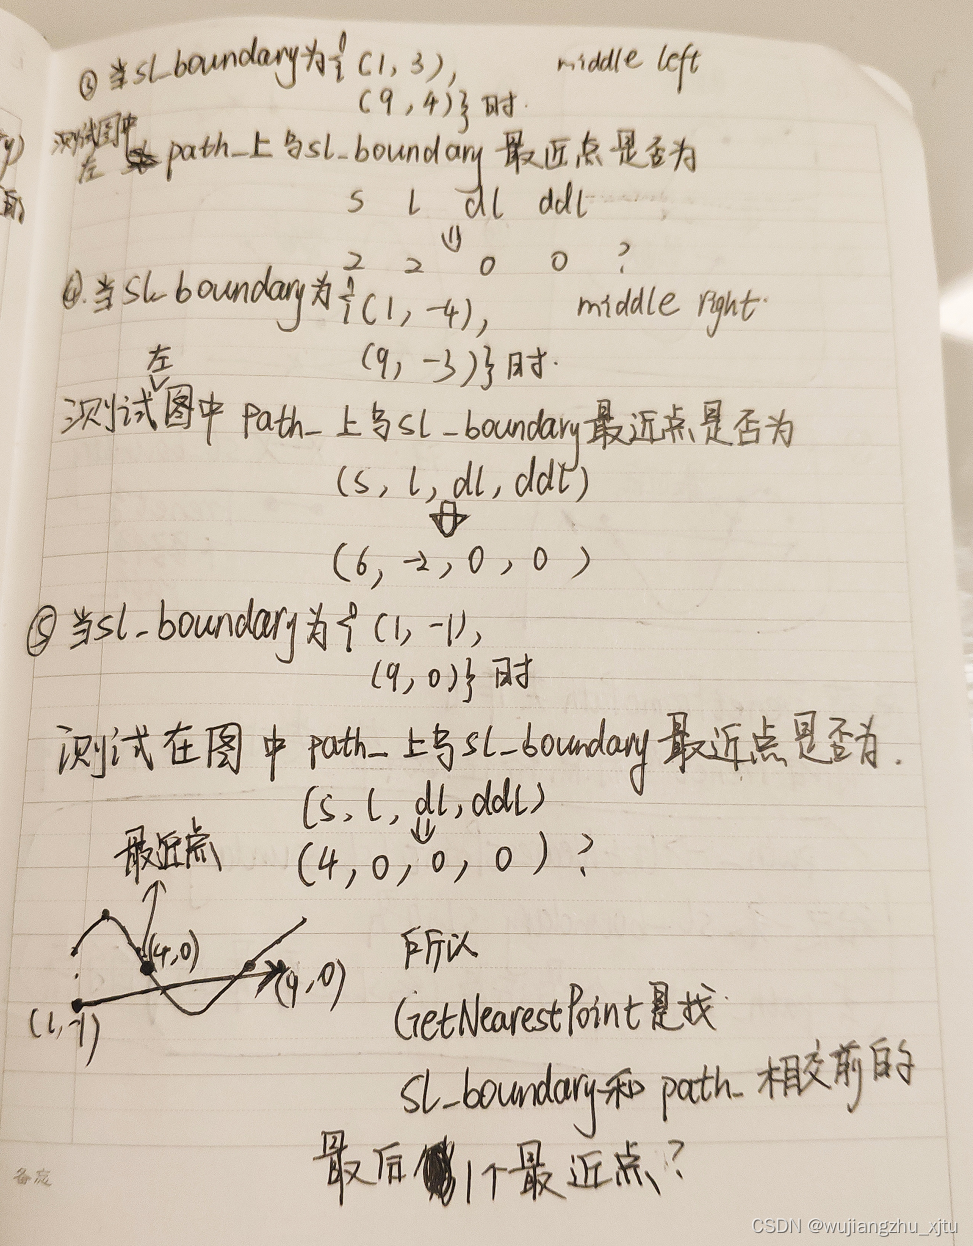 ③ 当sl_boundary为{(1, 3),
middle left
(9, 4)}时.
测试图中
左 path_上与sl_boundary 最近点是否为
s l dl ddl
⇓
2 2 0 0 ?
④.当SL boundary为{(1, -4),
middle right.
(9, -3)}时.
左
测试图中 path_上与sl_boundary最近点是否为
(s, l, dl, ddl)
⇓
(6, -2, 0, 0 )
⑤ 当sl_boundary为{(1, -1),
(9, 0)}时
测试在图中 path_上与sl_boundary最近点是否为.
(s, l, dl, ddl)
⇓
(4, 0, 0, 0 ) ?
最近点
(4,0)
(9,0)
(1,-1)
所以
GetNearestPoint是找
SL_boundary和path_相交前的
最后1个最近点?
备忘
CSDN @wujiangzhu_xjtu